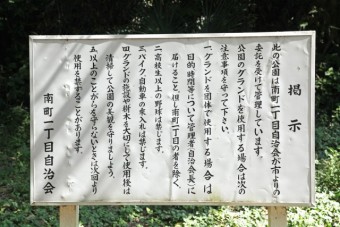 掲示
此の公園は南町一丁目自治会が市よりの
委託を受けて管理しています。
公園のグランドを使用する場合は次の
注意事項を守って下さい。
一、グランドを団体で使用する場合は
目的時間等について管理者(自治会長)に
届けること、但し南町一丁目の者を除く。
二、高校生以上の野球は禁じます。
三、バイク、自動車の乗入れは禁じます。
四、グランドの施設や樹木を大切にして使用後は
清掃して公園の美観を守りましょう。
五、以上のことがらを守らないときは次回より
使用を禁ずることがあります。
南町一丁目自治会